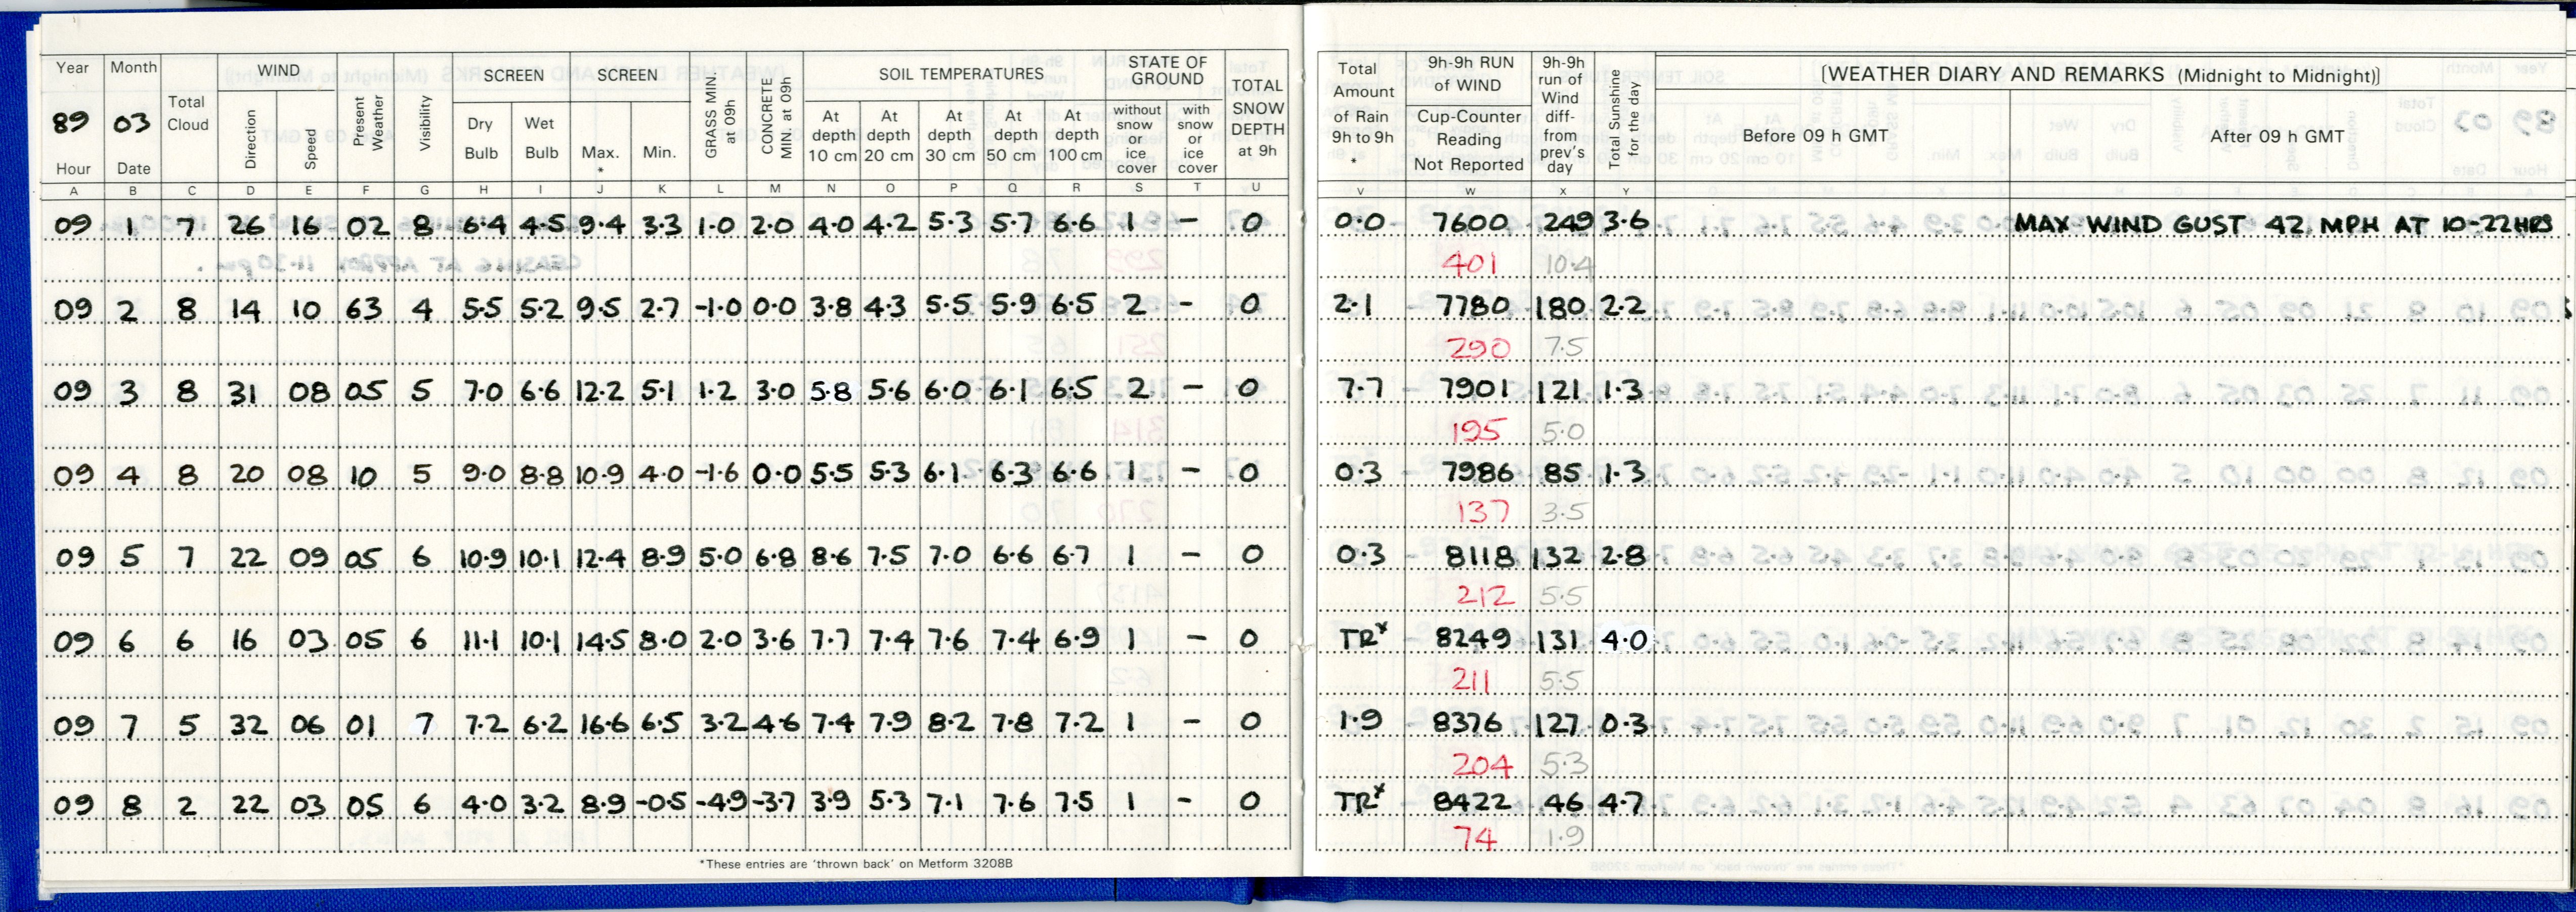 Year Month WIND SCREEN SCREEN SOIL TEMPERATURES STATE OF GROUND
89 03 Total Cloud Direction Speed Present Weather Visibility Dry Bulb Wet Bulb Max. * Min. GRASS MIN at 09h CONCRETE MIN at 09h At depth 10 cm At depth 20 cm At depth 30 cm At depth 50 cm At depth 100 cm without snow or ice cover with snow or ice cover TOTAL SNOW DEPTH at 9h
Hour Date
A B C D E F G H I J K L M N O P Q R S T U
09 1 7 26 16 02 8 6.4 4.5 9.4 3.3 1.0 2.0 4.0 4.2 5.3 5.7 6.6 1 – 0
09 2 8 14 10 63 4 5.5 5.2 9.5 2.7 -1.0 0.0 3.8 4.3 5.5 5.9 6.5 2 – 0
09 3 8 31 08 05 5 7.0 6.6 12.2 5.1 1.2 3.0 5.8 5.6 6.0 6.1 6.5 2 – 0
09 4 8 20 08 10 5 9.0 8.8 10.9 4.0 -1.6 0.0 5.5 5.3 6.1 6.3 6.6 1 – 0
09 5 7 22 09 05 6 10.9 10.1 12.4 8.9 5.0 6.8 8.6 7.5 7.0 6.6 6.7 1 – 0
09 6 6 16 03 05 6 11.1 10.1 14.5 8.0 2.0 3.6 7.7 7.4 7.6 7.4 6.9 1 – 0
09 7 5 32 06 01 7 7.2 6.2 16.6 6.5 3.2 4.6 7.4 7.9 8.2 7.8 7.2 1 – 0
09 8 2 22 03 05 6 4.0 3.2 8.9 -0.5 -4.9 -3.7 3.9 5.3 7.1 7.6 7.5 1 – 0
*These entries are 'thrown back' on Metform 3208B
Total Amount of Rain 9h to 9h * 9h-9h RUN of WIND Cup-Counter Reading Not Reported 9h-9h run of Wind diff- from prev's day Total Sunshine for the day [WEATHER DIARY AND REMARKS (Midnight to Midnight)]
Before 09 h GMT After 09 h GMT
V W X Y
0.0 7600 249 3.6 MAX WIND GUST 42 MPH AT 10-22HRS
401 10.4
2.1 7780 180 2.2
290 7.5
7.7 7901 121 1.3
195 5.0
0.3 7986 85 1.3
137 3.5
0.3 8118 132 2.8
212 5.5
TR* 8249 131 4.0
211 5.5
1.9 8376 127 0.3
204 5.3
TR* 8422 46 4.7
74 1.9